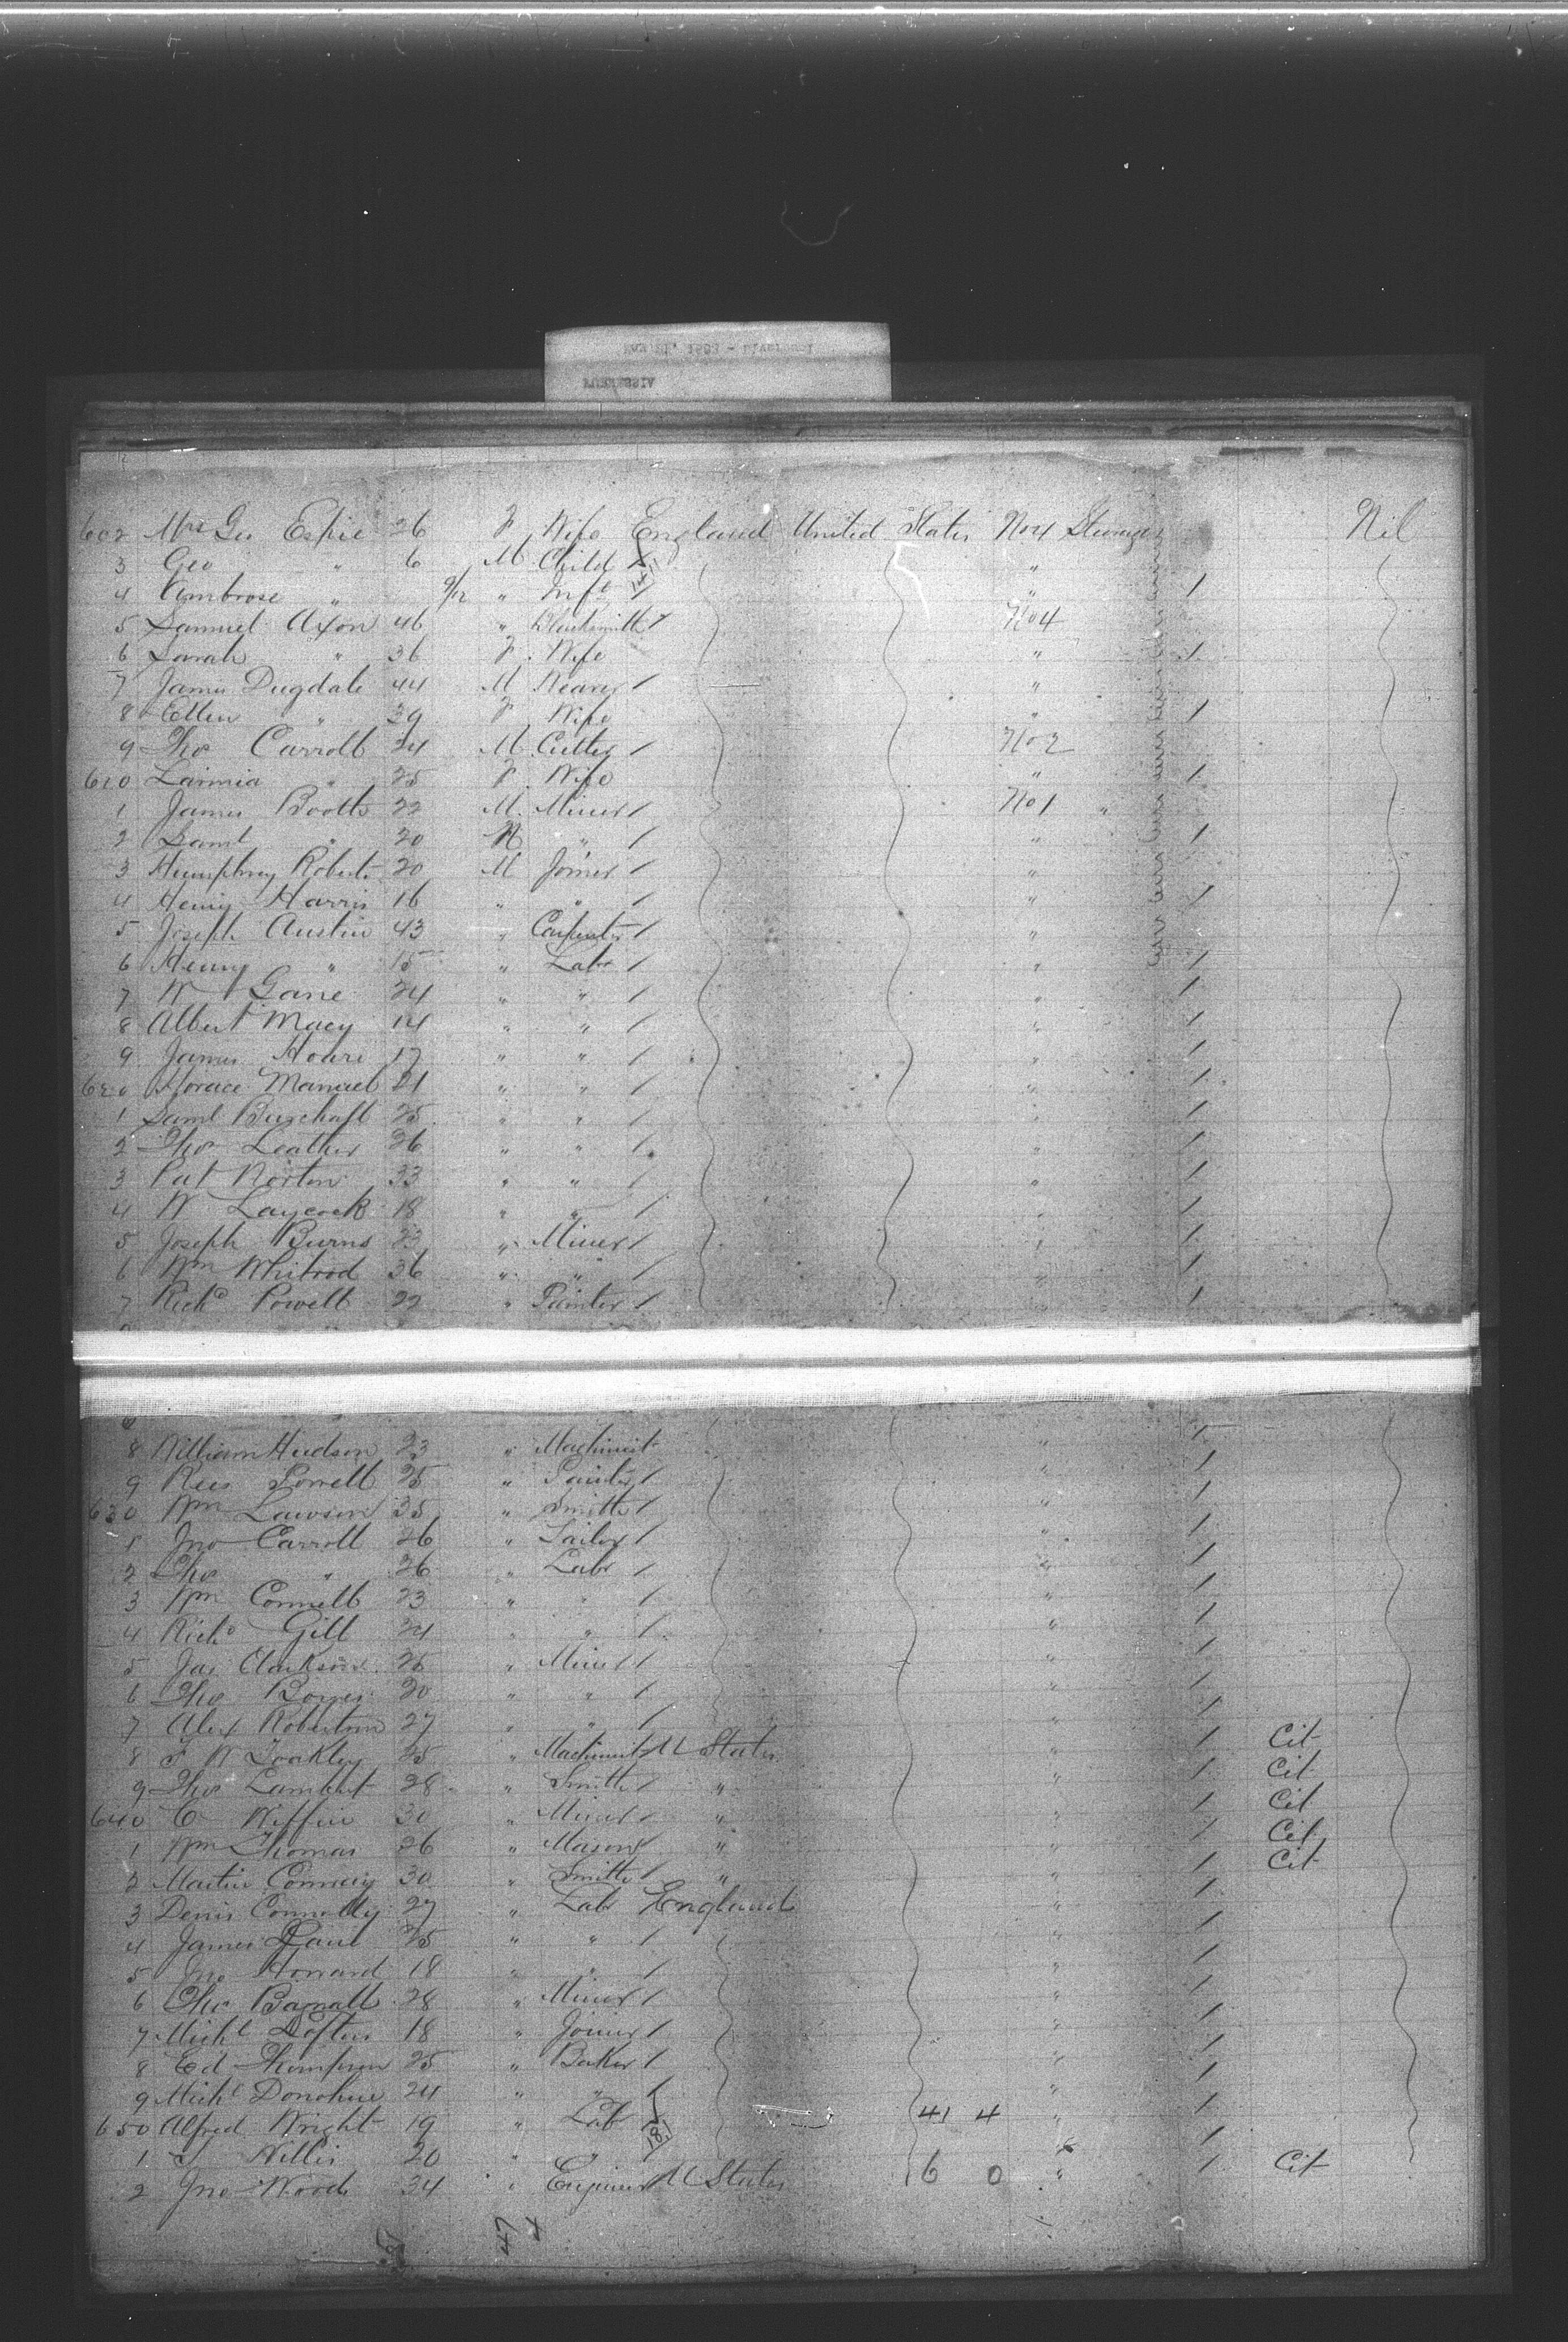 602 Mrs Geo Espie 26 F Wife England United States No 4 Steerage Nil
3 Geo " 6 M Child "
4 Ambrose " 9/12 " Inft " 1
5 Samuel Axon 46 " Blacksmith / No 4
6 Sarah " 36 F Wife " 1
7 James Dugdale 44 M Weaver / "
8 Ellen " 39 F Wife " 1
9 Tho Carroll 24 M Cutter / No 2
610 " 25 F Wife " 1
1 James Booth 22 M Miner / No 1 "
2 Saml " 20 " / " 1
3 Humphrey Roberts 20 M Joiner / "
4 Henry Harris 16 " " / " 1
5 Joseph Austin 43 " Carpenter / "
6 Henry " 15 " Labr / " 1
7 W Gane 24 " " / " 1
8 Albert Macy 14 " " / " 1
9 James Hoare 17 " " / " 1
620 Horace Manuel 21 " " / " 1
1 Saml 25 " " / " 1
2 Tho Leather 26 " " / " 1
3 Pat Norton 33 " " / " 1
4 W Laycock 18 " " / " 1
5 Joseph Burns 23 " Miner / " 1
6 Wm Whitrod 36 " " / " 1
7 Richd Powell 22 " Painter / " 1
8 William Hudson 23 " Machinist " 1
9 Rees Powell 25 " Painter / " 1
630 Wm Lawson 35 " Smith / " 1
1 Jno Carroll 26 " Tailor / " 1
2 Tho " 26 " Labr / " 1
3 Wm Connell 23 " " / " 1
4 Richd Gill 24 " " / " 1
5 Jas Clarkson 25 " Miner / " 1
6 Tho 20 " " / " 1
7 Alex Robertson 27 " " / " 1
8 W 25 " Machinist U States " 1 Cit
9 Tho Lambert 28 " Smith / " " 1 Cit
640 C Wiffin 30 " Miner / " " 1 Cit
1 Wm Thomas 26 " Mason / " " 1 Cit
2 Martin Conway 30 " Smith / " " 1 Cit
3 Denis Connolly 27 " Labr England " 1
4 James Paul 25 " " / " 1
5 Jno Howard 18 " " / " 1
6 Tho 28 " Miner / " 1
7 Michl Loftus 18 " Joiner / " 1
8 Ed Thompson 25 " Baker / " 1
9 Michl Donohue 24 " " / " 1
650 Alfred Wright 19 " Lab 41 4 " 1
1 Willis 20 " " " 1
2 Jno Wood 34 " Engineer U States 6 0 " 1 Cit